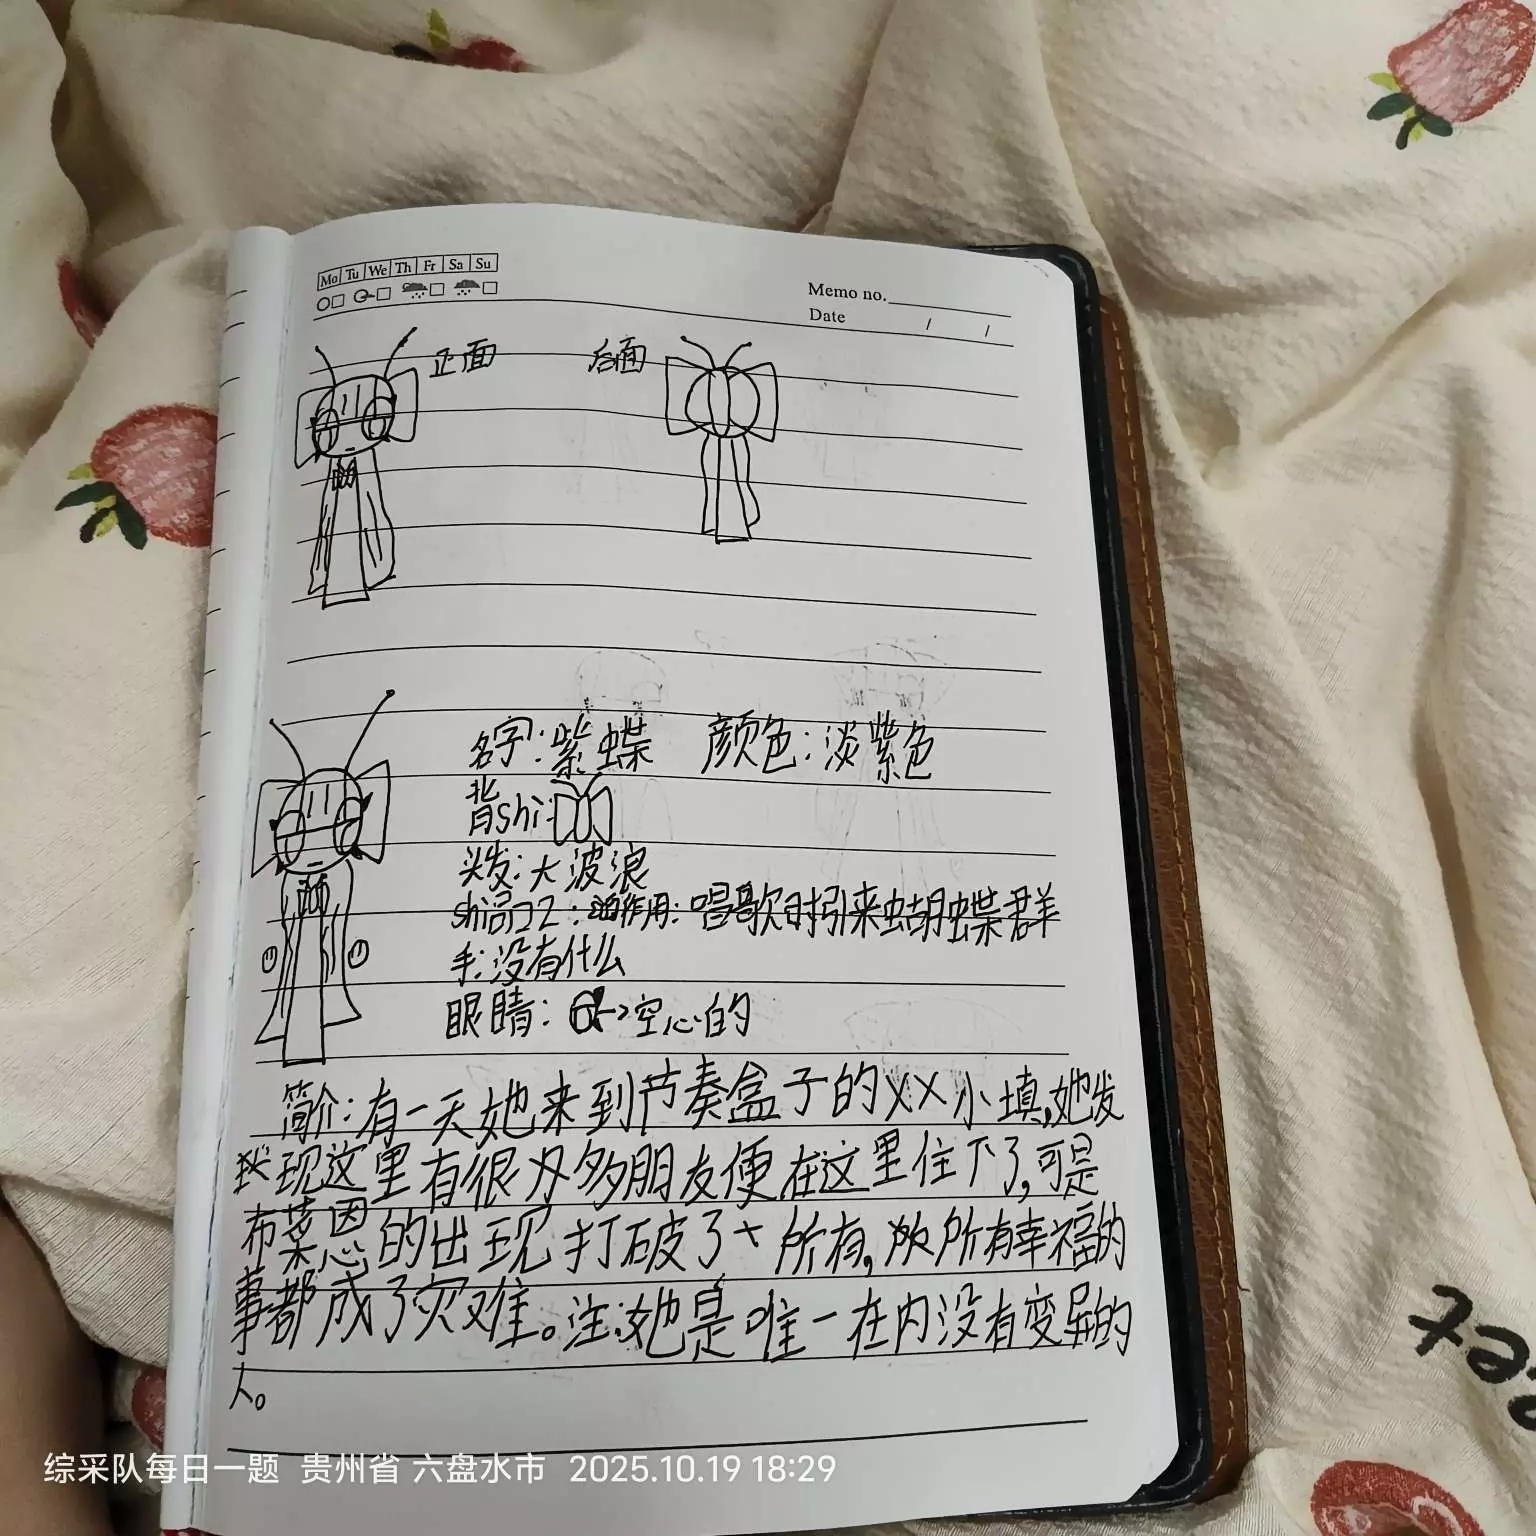 Mo Tu We Th Fr Sa Su
Memo no.
Date / /
正面 后面
名字:紫蝶 颜色:淡紫色
背shi:
头发:大波浪
作用:唱歌时引来蝴蝶群
手:没有什么
眼睛: 空心的
简介:有一天她来到节奏盒子的XX小填,她发
现这里有很多朋友便在这里住下了,可是
布莱因的出现打破了所有,所有幸福的
事都成了灾难。注:她是唯一在内没有变异的
人。
综采队每日一题 贵州省 六盘水市 2025.10.19 18:29